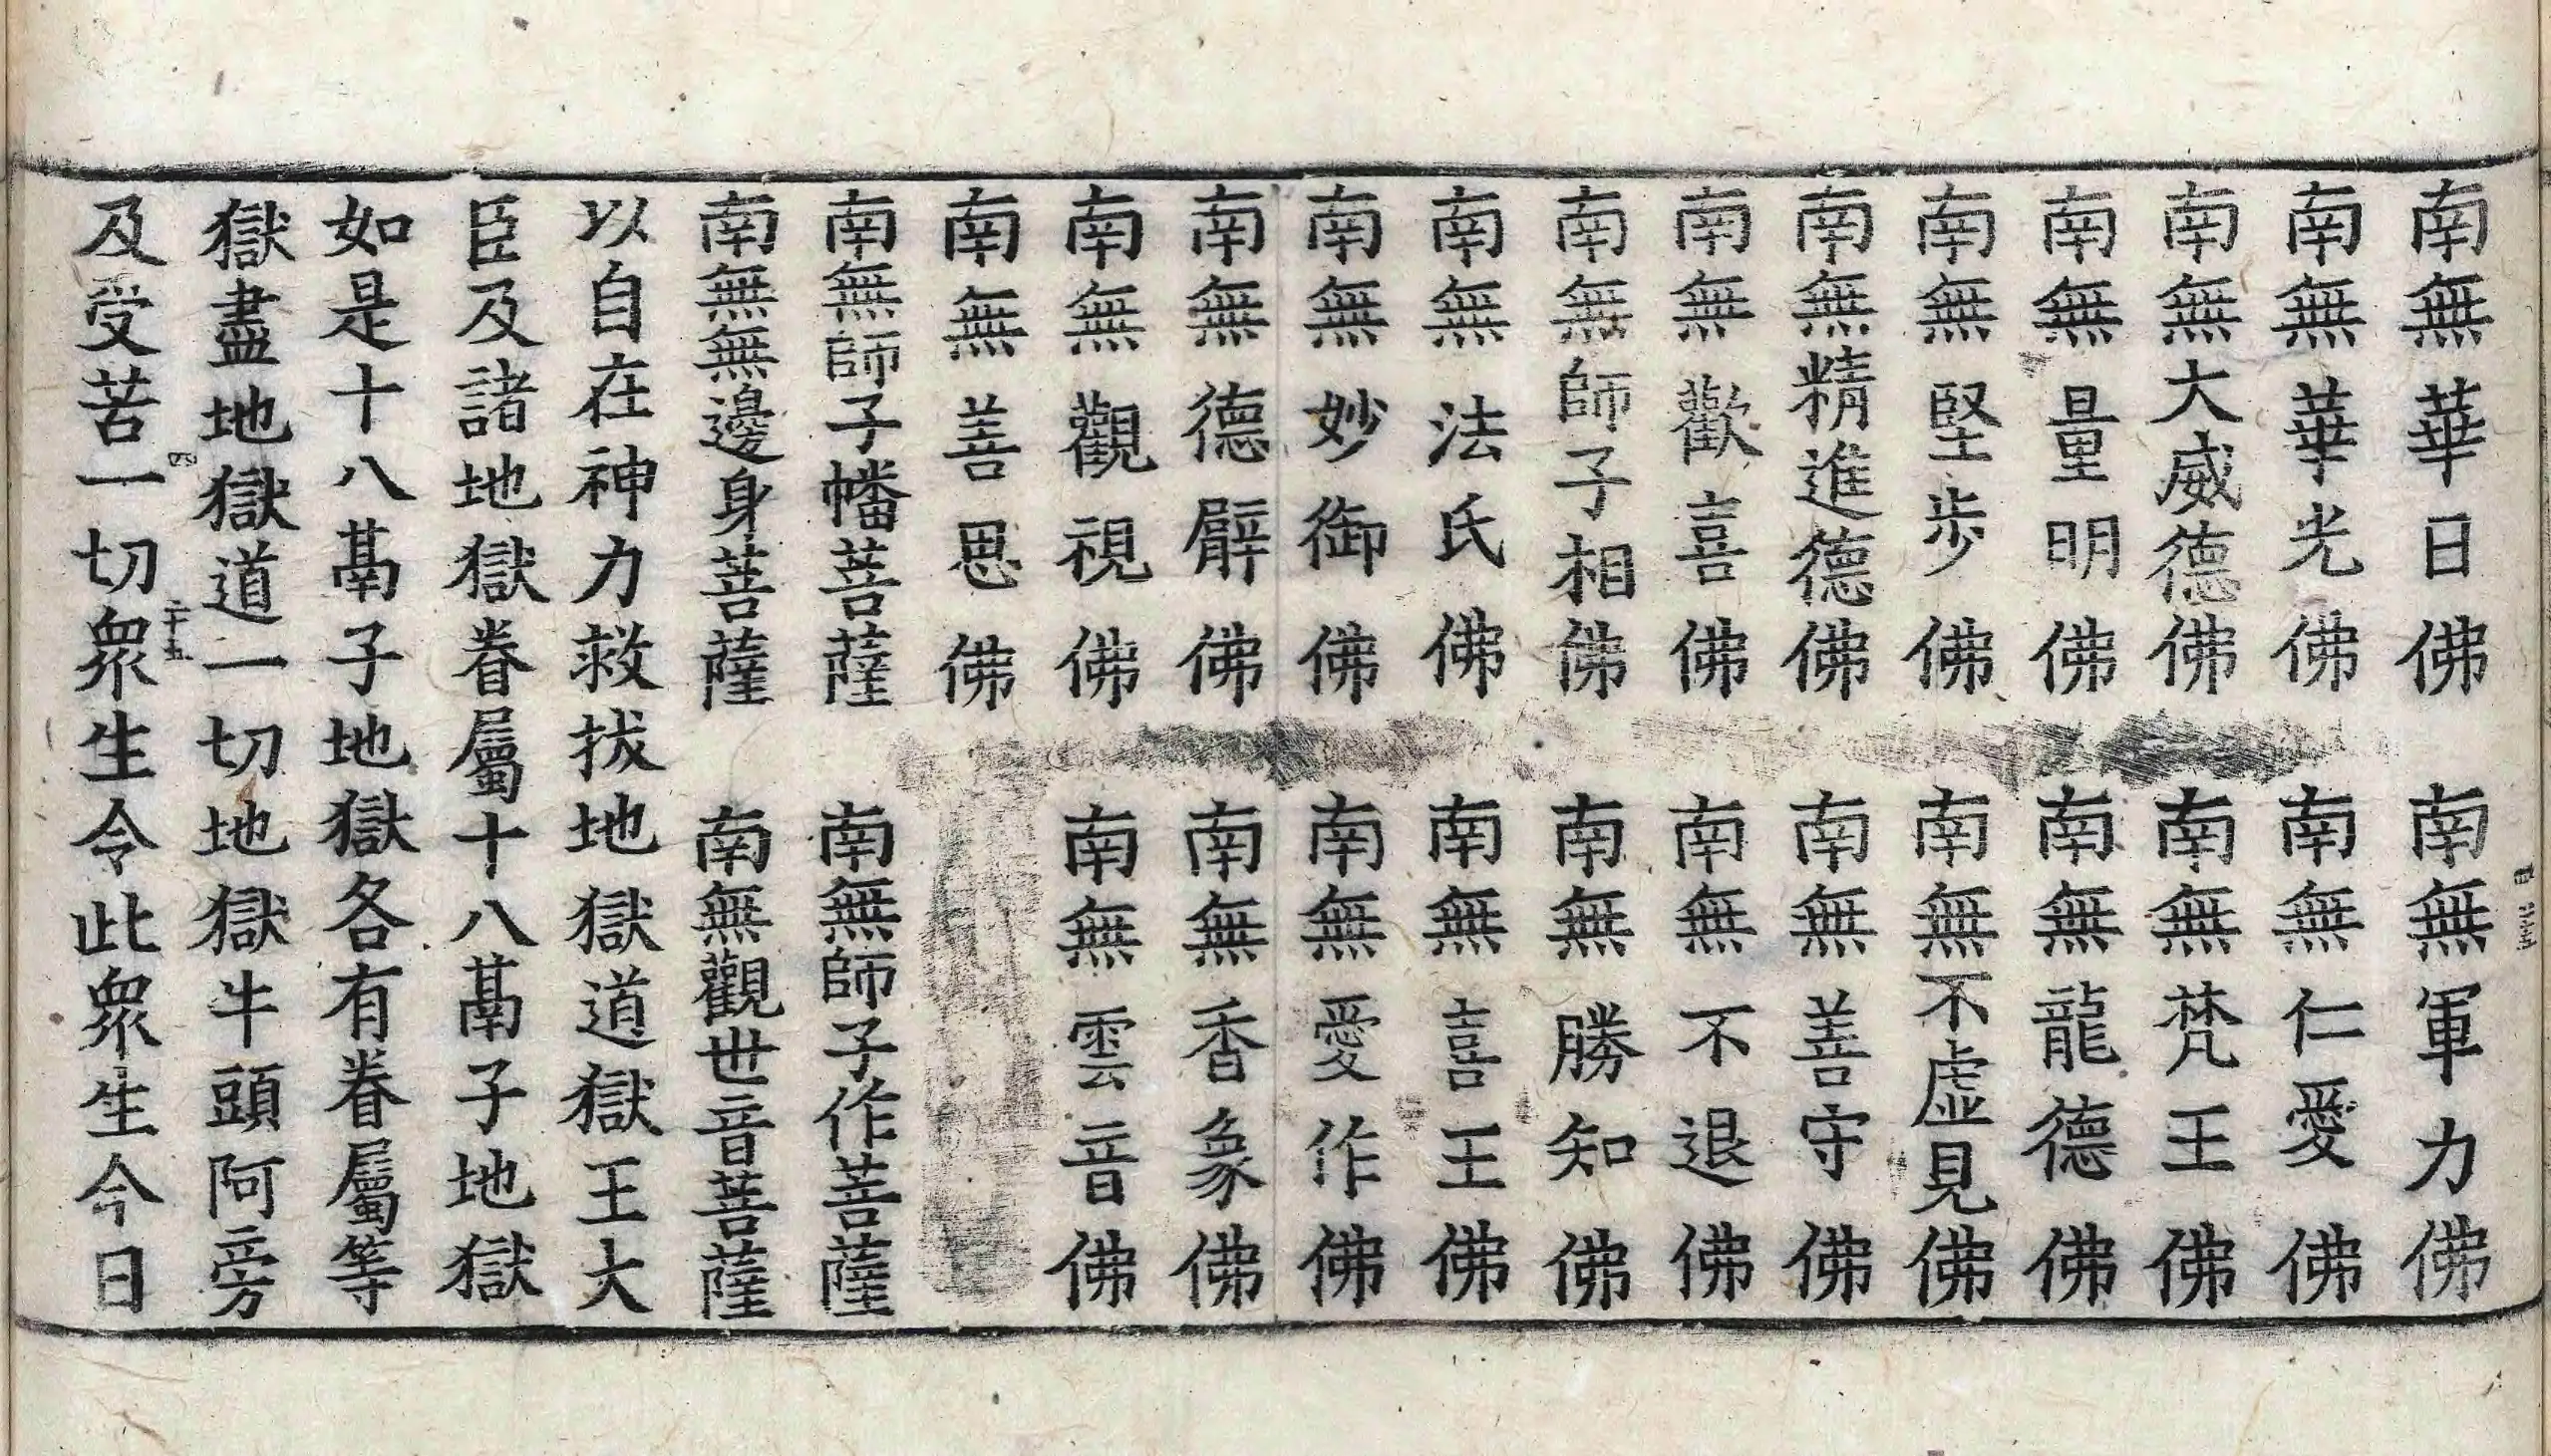 南無華日佛　南無軍力佛
南無華光佛　南無仁愛佛
南無大威德佛　南無梵王佛
南無量明佛　南無龍德佛
南無堅步佛　南無不虛見佛
南無精進德佛　南無善守佛
南無歡喜佛　南無不退佛
南無師子相佛　南無勝知佛
南無法氏佛　南無喜王佛
南無妙御佛　南無愛作佛
南無德臂佛　南無香象佛
南無觀視佛　南無雲音佛
南無善思佛
南無師子幡菩薩　南無師子作菩薩
南無無邊身菩薩　南無觀世音菩薩
以自在神力救拔地獄道獄王大
臣及諸地獄眷屬十八鬲子地獄
如是十八鬲子地獄各有眷屬等
獄盡地獄道一切地獄牛頭阿旁
四　二十五
及受苦一切眾生令此眾生今日